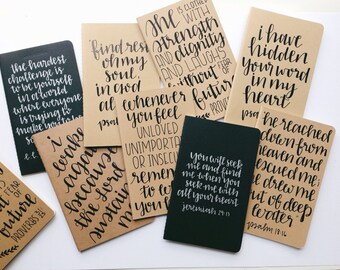 the hardest
challenge is
to be yourself
in a world
where everyone
is trying to
make you
find rest
oh my
soul,
in God
She
is clothed
with
strength
and
dignity
and laughs
without
i have
hidden
your word
in my
heart.
future
PROVERBS
again
because
the Lord
sustains
whenever
you feel
UNLOVED
UNIMPORTA
OR INSECU
you will seek
me and find
me when you
seek me with
all your heart
jeremiah 29:13
he reached
down from
heaven and
rescued me;
he drew me
out of deep
water.
psalm 18:16